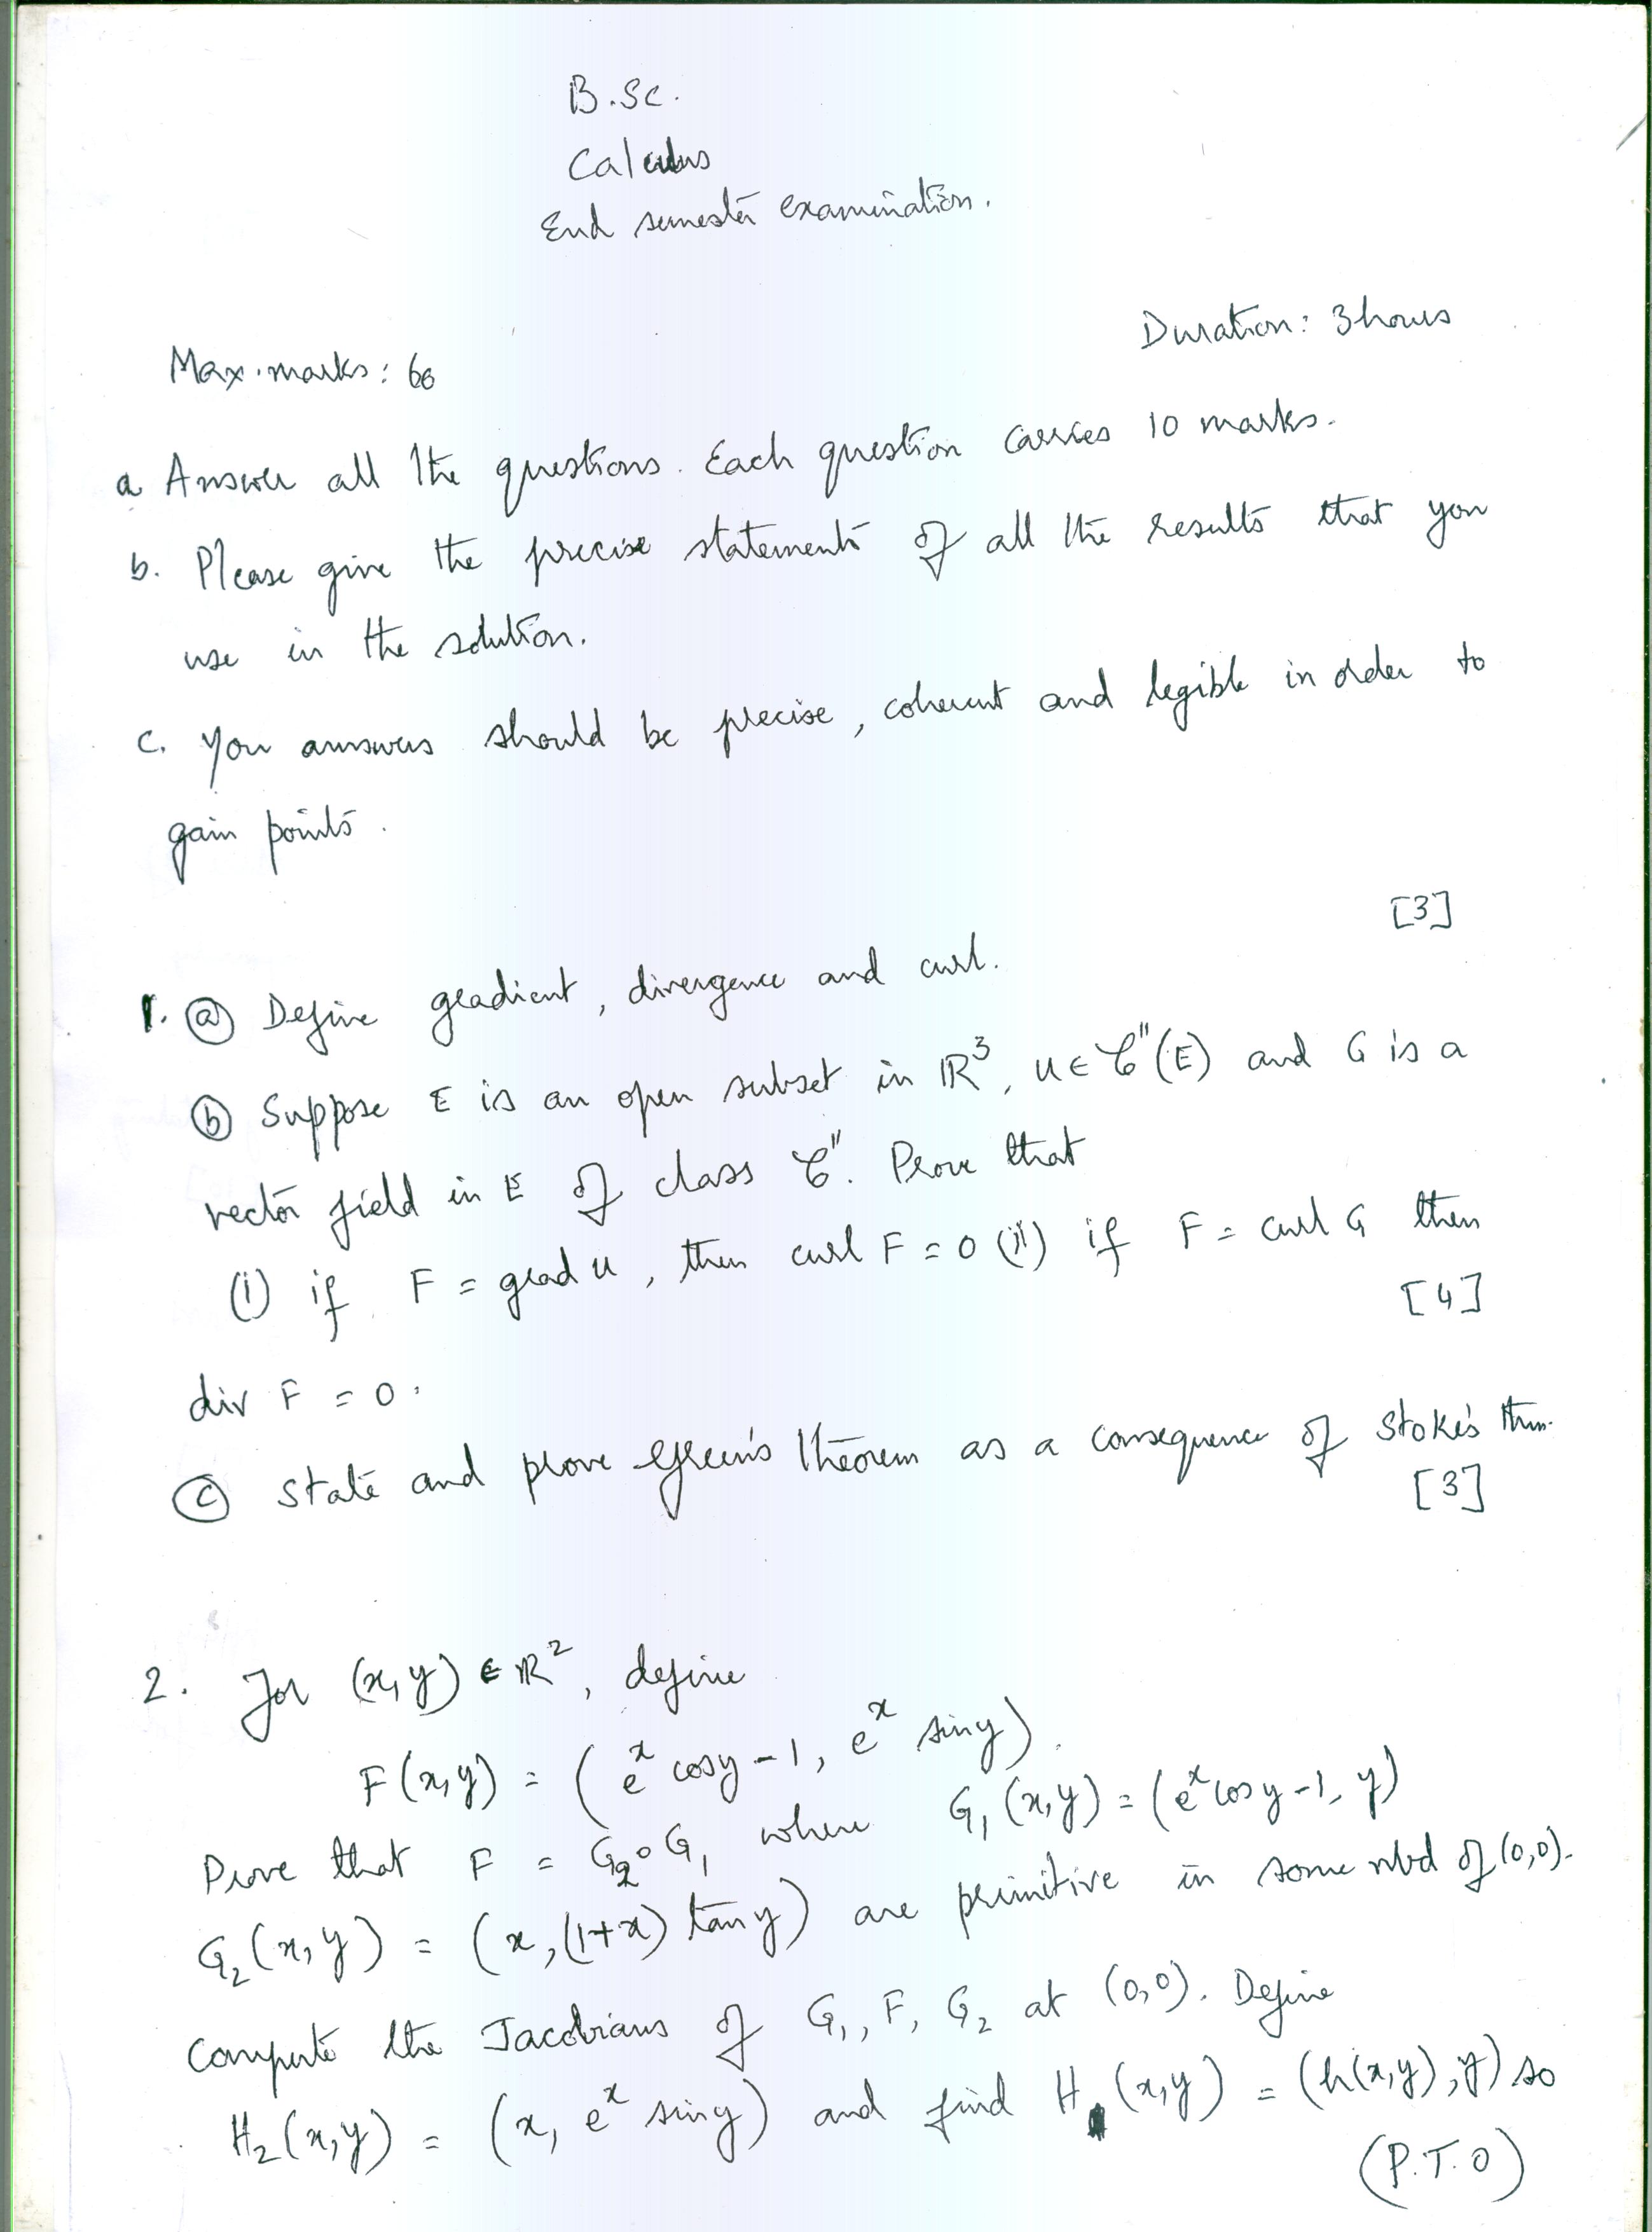 B.Sc.
Calculus
End semester examination.
Duration: 3 hours
Max. marks: 60
a Answer all the questions. Each question carries 10 marks.
b. Please give the precise statements of all the results that you
use in the solution.
c. your answers should be precise, coherent and legible in order to
gain points.
[3]
1. (a) Define gradient, divergence and curl.
(b) Suppose E is an open subset in ℝ³, u ∈ 𝒞''(E) and G is a
vector field in E of class 𝒞''. Prove that
(i) if F = grad u, then curl F = 0 (ii) if F = curl G then
[4]
div F = 0.
(c) State and prove Green's theorem as a consequence of Stoke's thm.
[3]
2. For (x,y) ∈ ℝ², define
F(x,y) = (eˣ cosy - 1, eˣ siny).
Prove that F = G₂∘G₁ where G₁(x,y) = (eˣ cosy - 1, y)
G₂(x,y) = (x, (1+x) tany) are primitive in some nbd of (0,0).
Compute the Jacobians of G₁, F, G₂ at (0,0). Define
H₂(x,y) = (x, eˣ siny) and find H (x,y) = (h(x,y), y) so
(P.T.O)